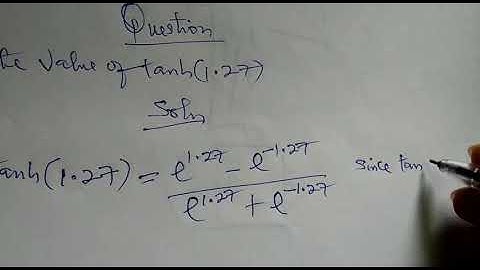 Question
the value of tanh(1.27)
Soln
tanh(1.27) = e^1.27 - e^-1.27 / e^1.27 + e^-1.27 since tan